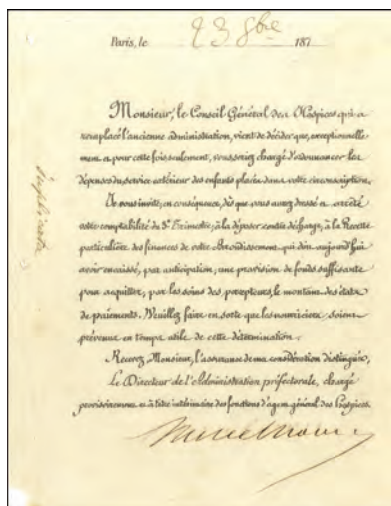 Paris, le 23 8bre 187
Monsieur, le Conseil Général des Hospices qui a
remplacé l'ancienne administration, vient de décider que, exceptionnelle
ment et pour cette fois seulement, vous seriez chargé d'ordonnancer les
dépenses du service extérieur des enfants placés dans votre circonscription.
Je vous invite, en conséquence, dès que vous aurez dressé et arrêté
votre comptabilité du 3e Trimestre, à la déposer contre décharge, à la Recette
particulière des finances de votre Arrondissement qui doit aujourd'hui
avoir encaissé, par anticipation, une provision de fonds suffisante
pour acquitter, par les soins des percepteurs, le montant des états
de paiements. Veuillez faire en sorte que les nourriciers soient
prévenus en temps utile de cette détermination.
Recevez, Monsieur, l'assurance de ma considération distinguée,
Le Directeur de l'Administration préfectorale, chargé
provisoirement et à titre intérimaire des fonctions d'agent général des Hospices.
duplicata